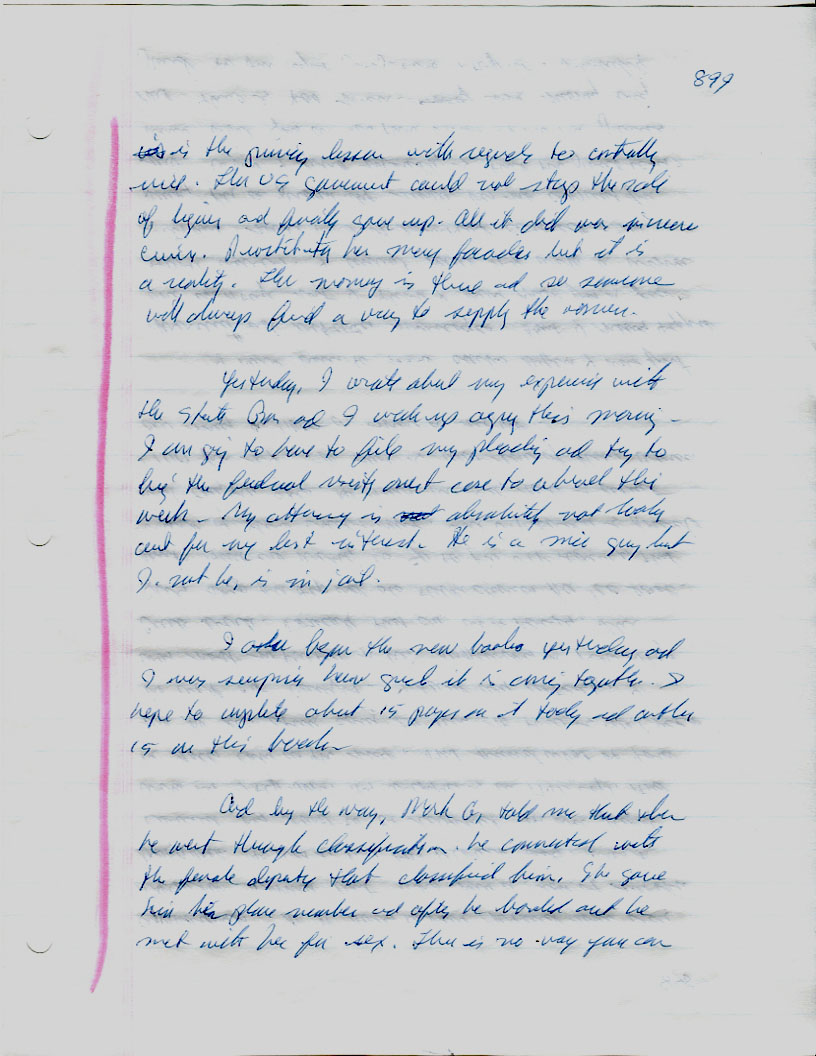 899
is the priming lesson with regards to contrally
vice. The US government could not stop the sale
of liquor ad finally gave up. All it did was increase
crime. Prostitution has many facades but it is
a reality. The money is there ad so someone
will always find a way to supply the women.
Yesterday, I wrote about my experience with
the State Bar ad I woke up angry this morning.
I am going to have to file my pleading ad try to
the federal court case to this
week. My attorney is absolutely not looking
out for my best interest. He is a nice guy but
I, not he, is in jail.
I began the new book yesterday ad
I was surprise how quick it is coming together. I
hope to complete about 15 pages on it today ad another
15 on this book.
And by the way, Mark G. told me that when
he went through classification he connected with
the female deputy that classified him. She gave
him her phone number ad after he bonded out he
met with her for sex. There is no way you can